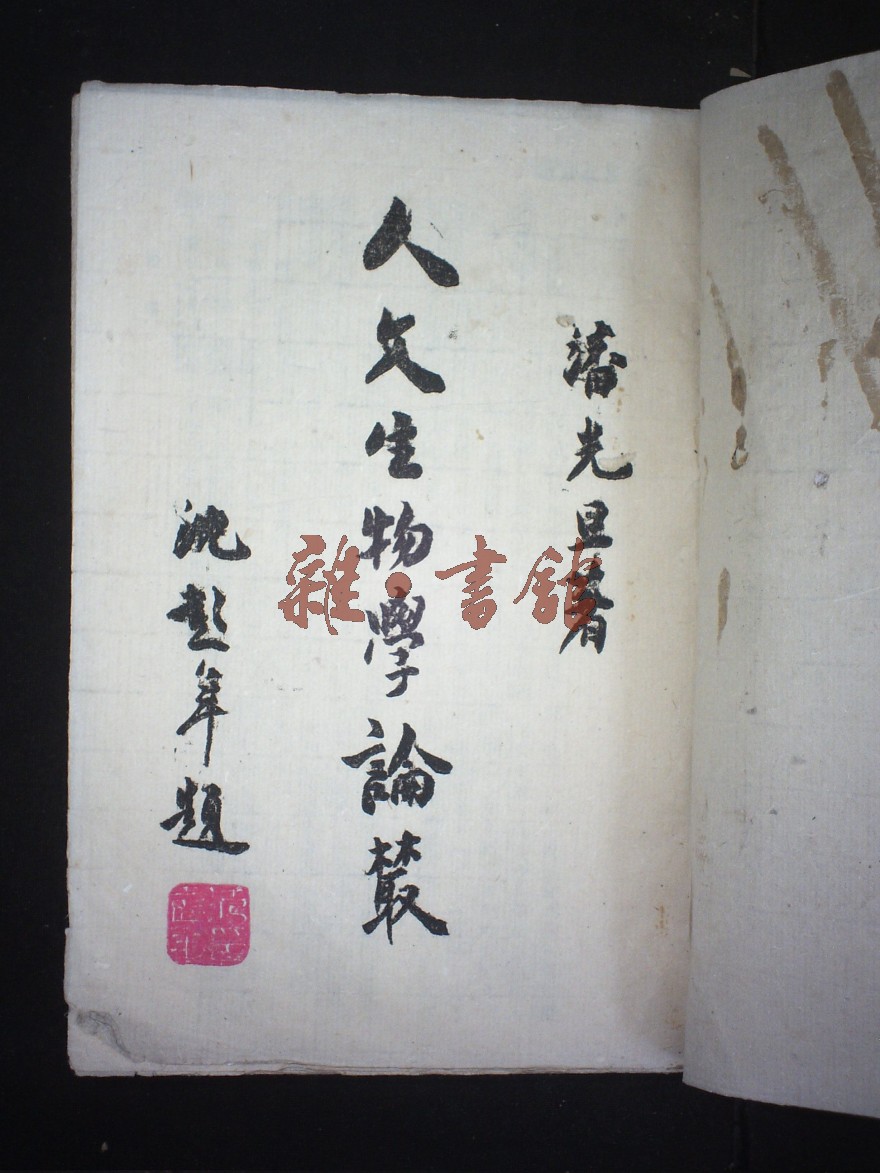 潘光旦著
人文生物學論叢
沈彭年題
雜·書館